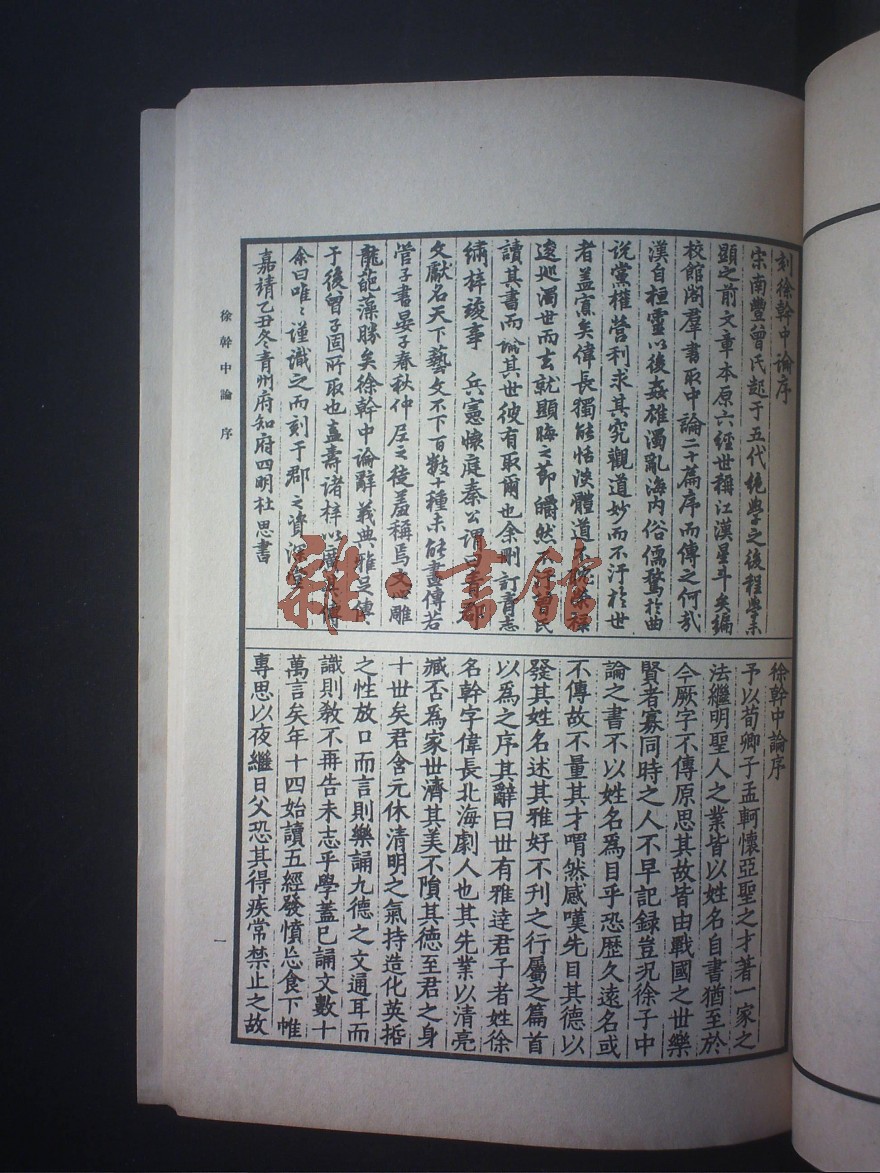 刻徐幹中論序
宋南豐曾氏起于五代絶學之後程學未
顯之前文章本原六經世稱江漢星斗矣編
校館閣羣書取中論二十篇序而傳之何哉
漢自桓靈以後姦雄濁亂海内俗儒騖於曲
説黨權營利求其究觀道妙而不汙於世
者盖寡矣偉長獨能恬淡體道不
逡巡濁世而去就顯晦之節皭然不汙曾氏
讀其書而論其世彼有取爾也余刪訂青志
繡梓竣事 兵憲慷庭秦公谓曰青郡
文獻名天下藝文不下百數十種未能盡傳若
管子書晏子春秋仲尼之徒羞稱焉文心雕
龍葩藻勝矣徐幹中論辭義典雅足傳
于後曾子固所取也盍壽诸梓以廣其傳
余曰唯〻谨識之而刻于郡之資深堂
嘉靖乙丑冬青州府知府四明杜思書
徐幹中論序
予以荀卿子孟軻懷亞聖之才著一家之
法繼明聖人之業皆以姓名自書猶至於
今厥字不傳原思其故皆由戰國之世樂
賢者寡同時之人不早記録豈況徐子中
論之書不以姓名為目乎恐歷久遠名或
不傳故不量其才喟然感嘆先目其德以
發其姓名述其雅好不刊之行屬之篇首
以為之序其辭曰世有雅達君子者姓徐
名幹字偉長北海劇人也其先業以清亮
臧否為家世濟其美不隕其德至君之身
十世矣君含元休清明之氣持造化英拓
之性放口而言則樂誦九德之文通耳而
識則敎不再告未志乎學蓋已誦文數十
萬言矣年十四始讀五經發憤忘食下帷
專思以夜繼日父恐其得疾常禁止之故
徐幹中論 序
一
雜·書館